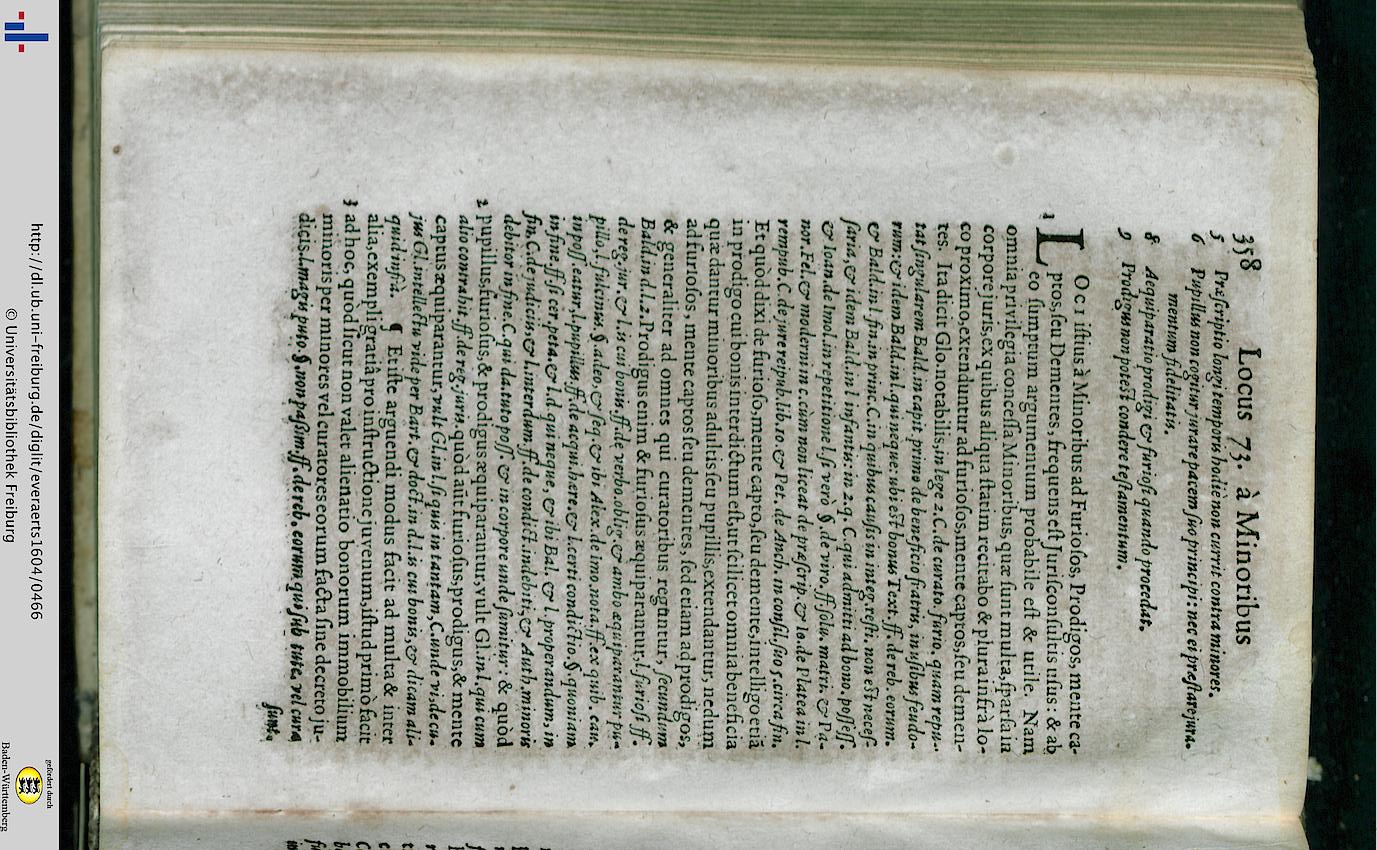 358 Locus 73. à Minoribus
5 Præscriptio longi temporis hodie non currit contra minores.
6 Pupillus non cogitur jurare pacem suo principi: nec ei præstare jura-
mentum fidelitatis.
8 Aequiparatio prodigi & furiosi quando procedat.
9 Prodigus non potest condere testamentum.
1 LOci istius à Minoribus ad Furiosos, Prodigos, mente ca-
ptos, seu Dementes, frequens est Jurisconsultis usus: & ab
eo sumptum argumentum probabile est & utile. Nam
omnia privilegia concessa Minoribus, quæ sunt multa, sparsa in
corpore juris, ex quibus aliqua statim recitabo & plura infrà lo-
co proximo, extenduntur ad furiosos, mente captos, seu demen-
tes. Ita dicit Glo. notabilis, in lege 2. C. de curato. furio. quam repu-
tat singularem Bald. in capit. primo de beneficio fratris, in usibus feudo-
rum: & idem Bald. in l. qui neque: ubi est bonus Text. ff. de reb. eorum.
& Bald. in l. fin. in princ. C. in quibus causis in integ. resti. non est neces-
saria, & idem Bald. in l. infantis: in 2. q. C. qui admitti ad bono. possess.
& Ioan. de Imol. in repetitione l. si verò §. de viro. ff. solu. matri. & Pa-
nor. Fel. & moderni in c. cùm non liceat de præscrip. & Io. de Platea in l.
rempub. C. de jure reipub. lib. 10. & Pet. de Anch. in consil. suo 5. circa fin.
Et quod dixi de furioso, mente capto, seu demente, intelligo etiã
in prodigo cui bonis interdictum est, ut scilicet omnia beneficia
quæ dantur minoribus adultis seu pupillis, extendantur, nedum
ad furiosos, mente captos seu dementes, sed etiam ad prodigos,
& generaliter ad omnes qui curatoribus reguntur, secundum
Bald. in d. l. 2. Prodigus enim & furiosus æquiparantur, l. furiosi ff.
de reg. jur. & l. is cui bonis. ff. de verbo. oblig. & ambo æquiparantur pu-
pillo, l. fulcinius. §. adeo, & §. seq. & ibi Alex. de imo. nota. ff. ex quib. cau.
in poss. eatur, l. pupillus. ff. de acqui. hære. & l. certi condictio. §. quoniam
in fine. ff. si cer. peta. & l. d. qui neque, & ibi Bal. & l. properandum, in
fin. C. de judiciis & l. interdum. ff. de condict. indebiti, & Auth. minoris
debitor in fine. C. qui da. tuto poss. & in corpore unde sumitur: & quòd
2 pupillus, furiosus, & prodigus æquiparantur, vult Gl. in l. qui cum
alio contrahit. ff. de reg. juris. quòd aũt furiosus, prodigus, & mente
captus æquiparantur, vult Gl. in l. si quis in tantam, C. unde vi. de cu-
jus Gl. intellectu vide per Bart. & doct. in d. l. is cui bonis, & dicam ali-
quid infrà. ¶ Et iste arguendi modus facit ad multa & inter
alia, exempli gratià pro instructione juvenum, istud primò facit
3 ad hoc, quod sicut non valet alienatio bonorum immobilium
minoris per minores vel curatores eorum facta sine decreto ju-
dicis. l. magis puto §. non passim ff. de reb. eorum qui sub tute. vel cura
sunt.
http://dl.ub.uni-freiburg.de/diglit/everaerts1604/0466
© Universitätsbibliothek Freiburg
gefördert durch
Baden-Württemberg